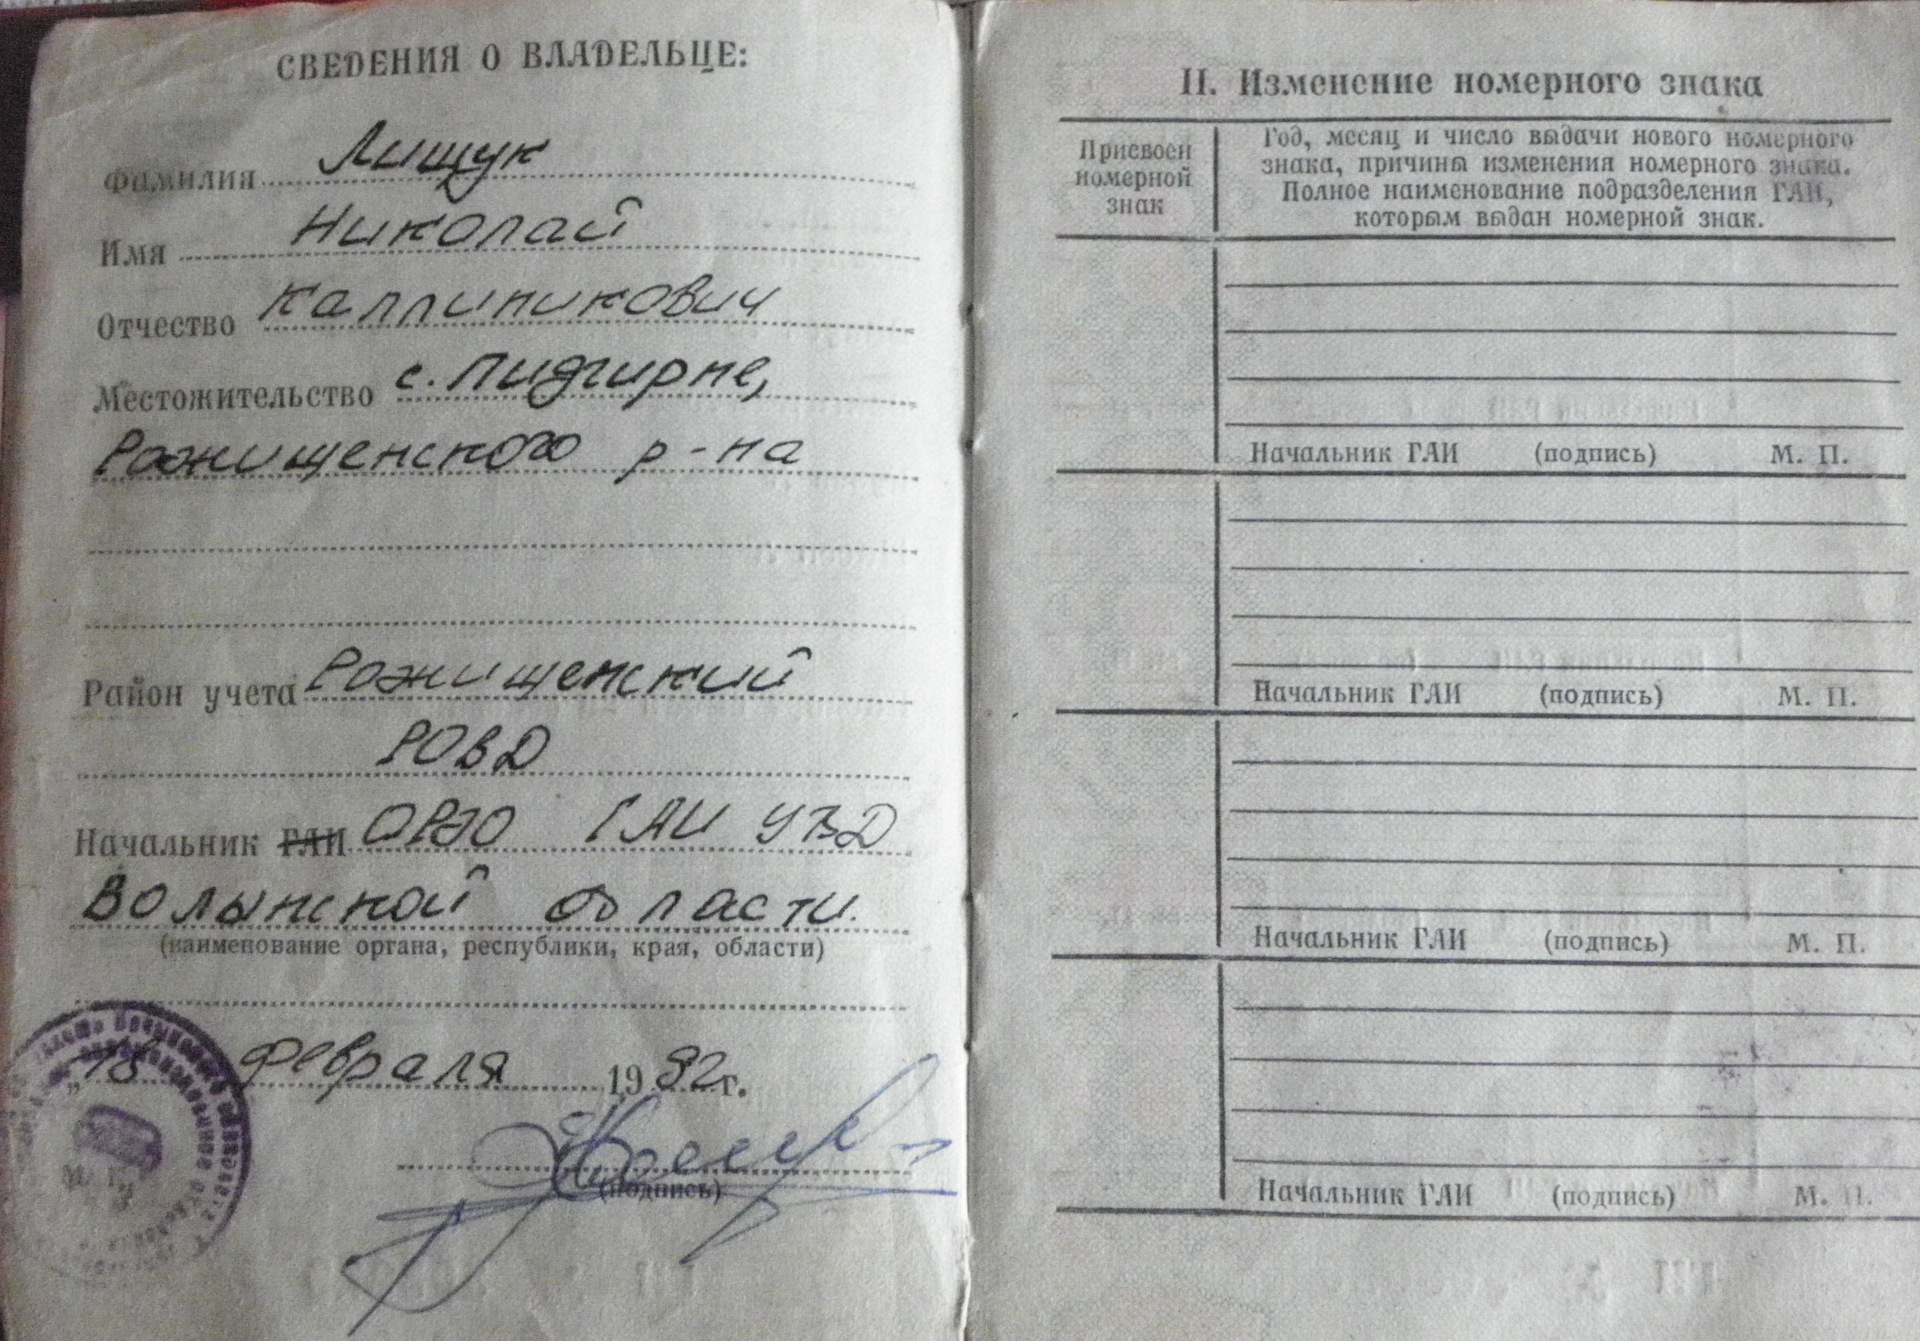 СВЕДЕНИЯ О ВЛАДЕЛЬЦЕ:
Фамилия Лищук
Имя Николай
Отчество Каллиникович
Местожительство с. Пидгирне,
Рожищенского р-на
Район учета Рожищенский
РОВД
Начальник ГАИ ОРЭО ГАИ УВД
Волынской области.
(наименование органа, республики, края, области)
"18 февраля 1992 г.
(подпись)
М. П.
II. Изменение номерного знака
Присвоен
номерной
знак
Год, месяц и число выдачи нового номерного
знака, причины изменения номерного знака.
Полное наименование подразделения ГАИ,
которым выдан номерной знак.
Начальник ГАИ (подпись) М. П.
Начальник ГАИ (подпись) М. П.
Начальник ГАИ (подпись) М. П.
Начальник ГАИ (подпись) М. П.